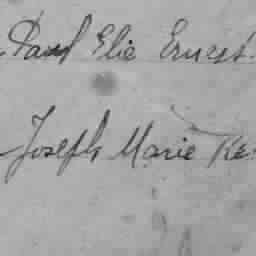 Paul Elie Ernest.
Joseph Marie Ke